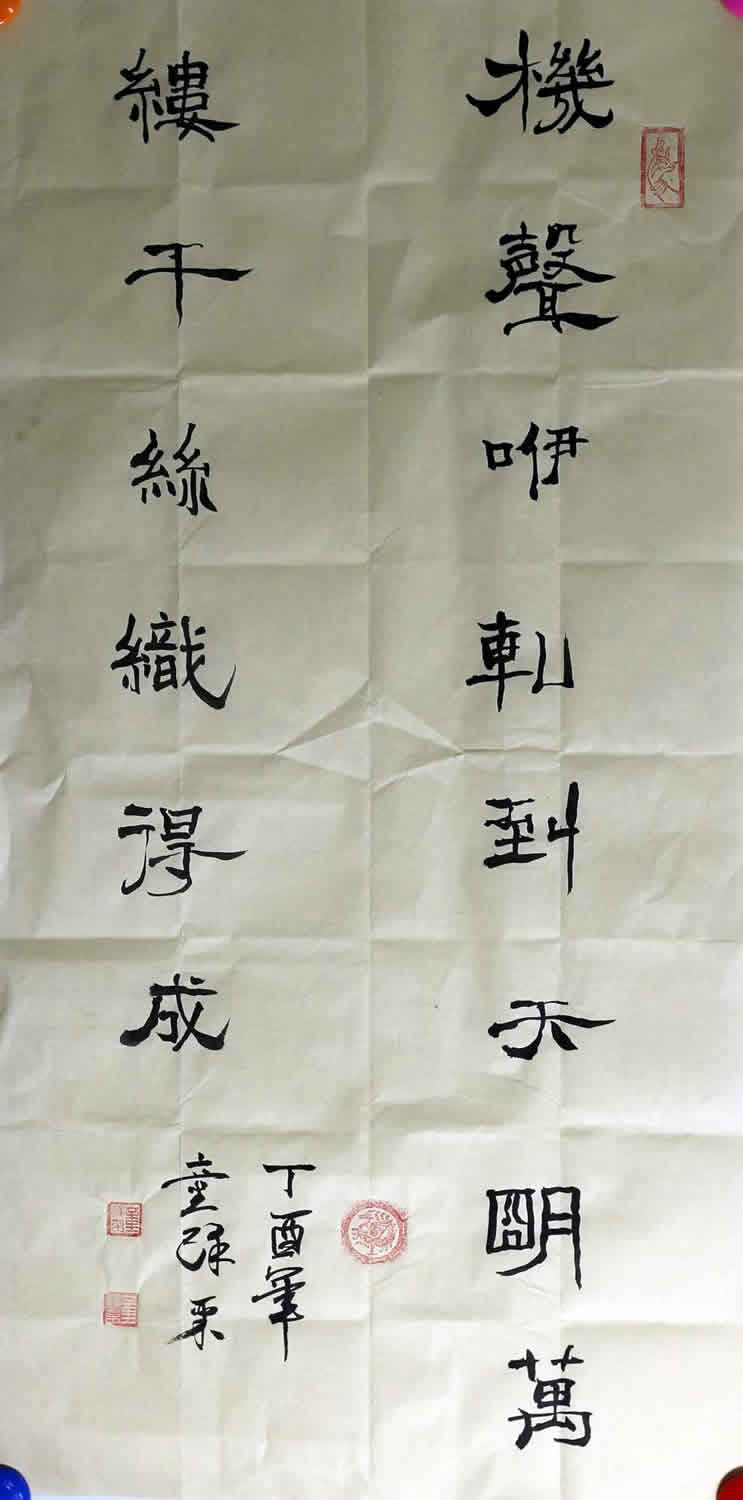 機聲咿軋到天明萬
縷千絲織得成
丁酉年
童